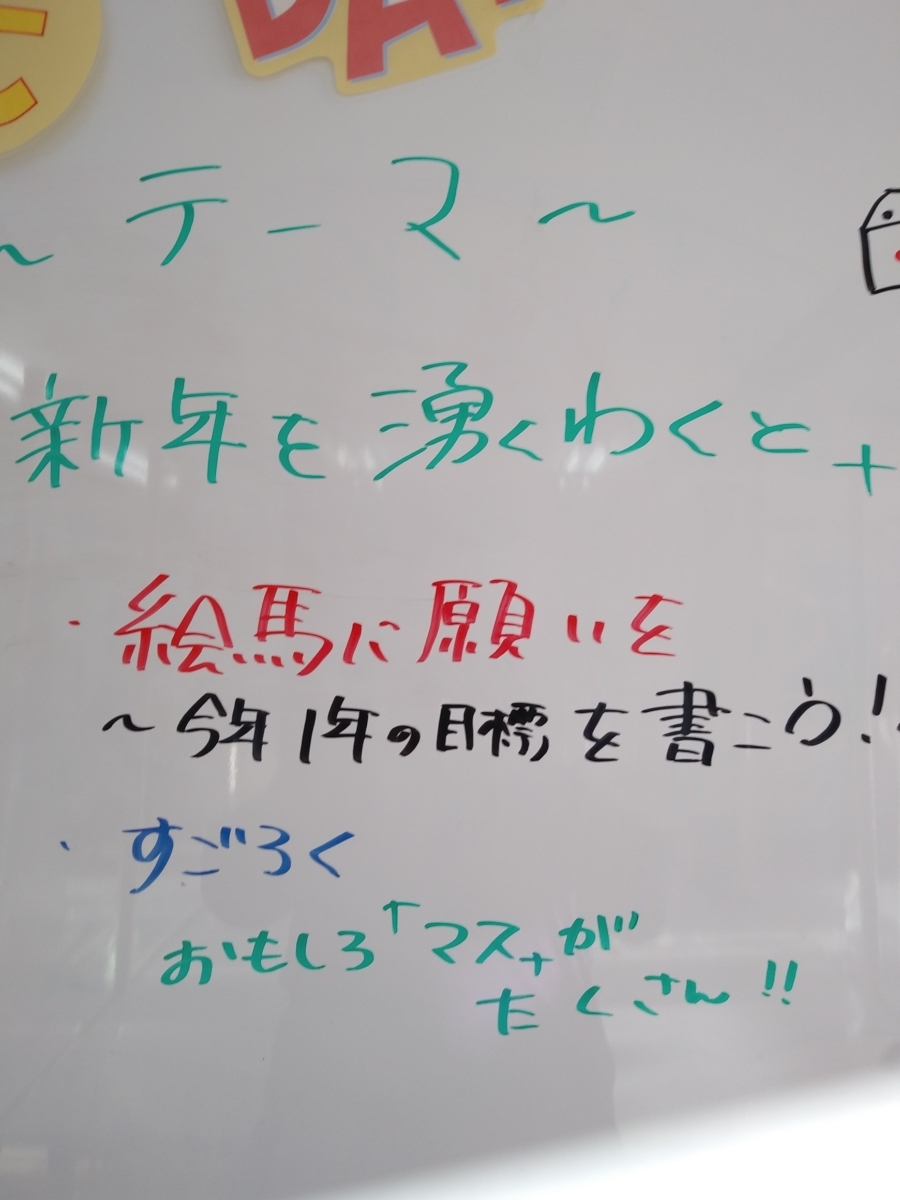 DA
～テーマ～
新年を湧くわくと
・絵馬に願いを
～今年1年の目標を書こう!
・すごろく
おもしろ「マス」が
たくさん!!